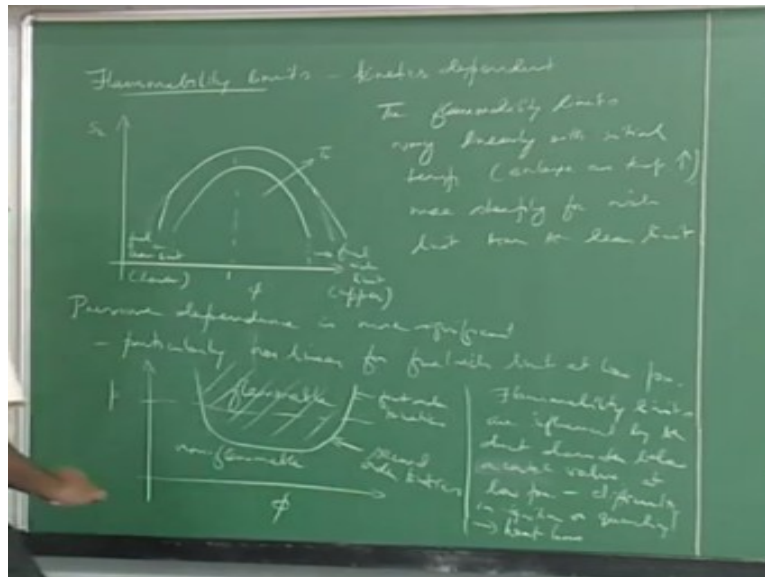 Flammability limits - kinetics dependent
The flammability limits
vary linearly with initial
temp. (enlarge as temp ↑)
more steeply for rich
limit than for lean limit
S_L
T_u
fuel
lean limit
(lower)
1
φ
fuel
rich
limit
(upper)
Pressure dependence is more significant
- particularly non linear for fuel rich limit at low pr.
p
flammable
non-flammable
first order
kinetics
second
order kinetics
φ
Flammability limits
are influenced by the
duct diameter below
a critical value at
low pr. - difficulty
in ignition or quenching
→ heat loss